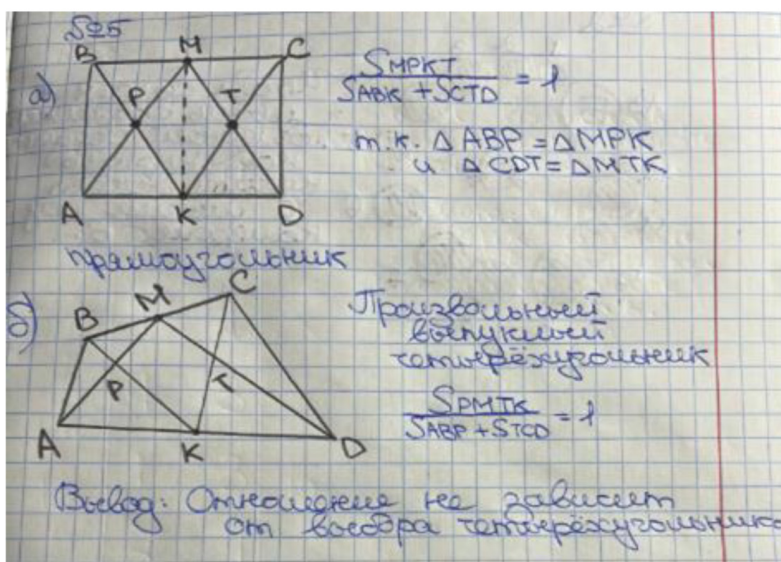 №5
B M C
а)
P T
A K D
SMPKT / SABK + SCTD = 1
т.к. △ ABP = △ MPK
и △ CDT = △ MTK
прямоугольник
б)
B M C
P T
A K D
Произвольный
выпуклый
четырёхугольник
SPMTK / SABP + STCD = 1
Вывод: Отношение не зависит
от выбора четырёхугольника